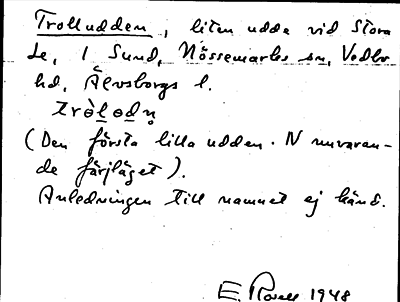 Trolludden, liten udde vid Stora
Le, i Sund, Nössemarks sn, Vedbo
hd, Älvsborgs l.
(Den första lilla udden. N nuvaran-
de färjläget).
Anledningen till namnet ej känd.
E. Rosell 1948